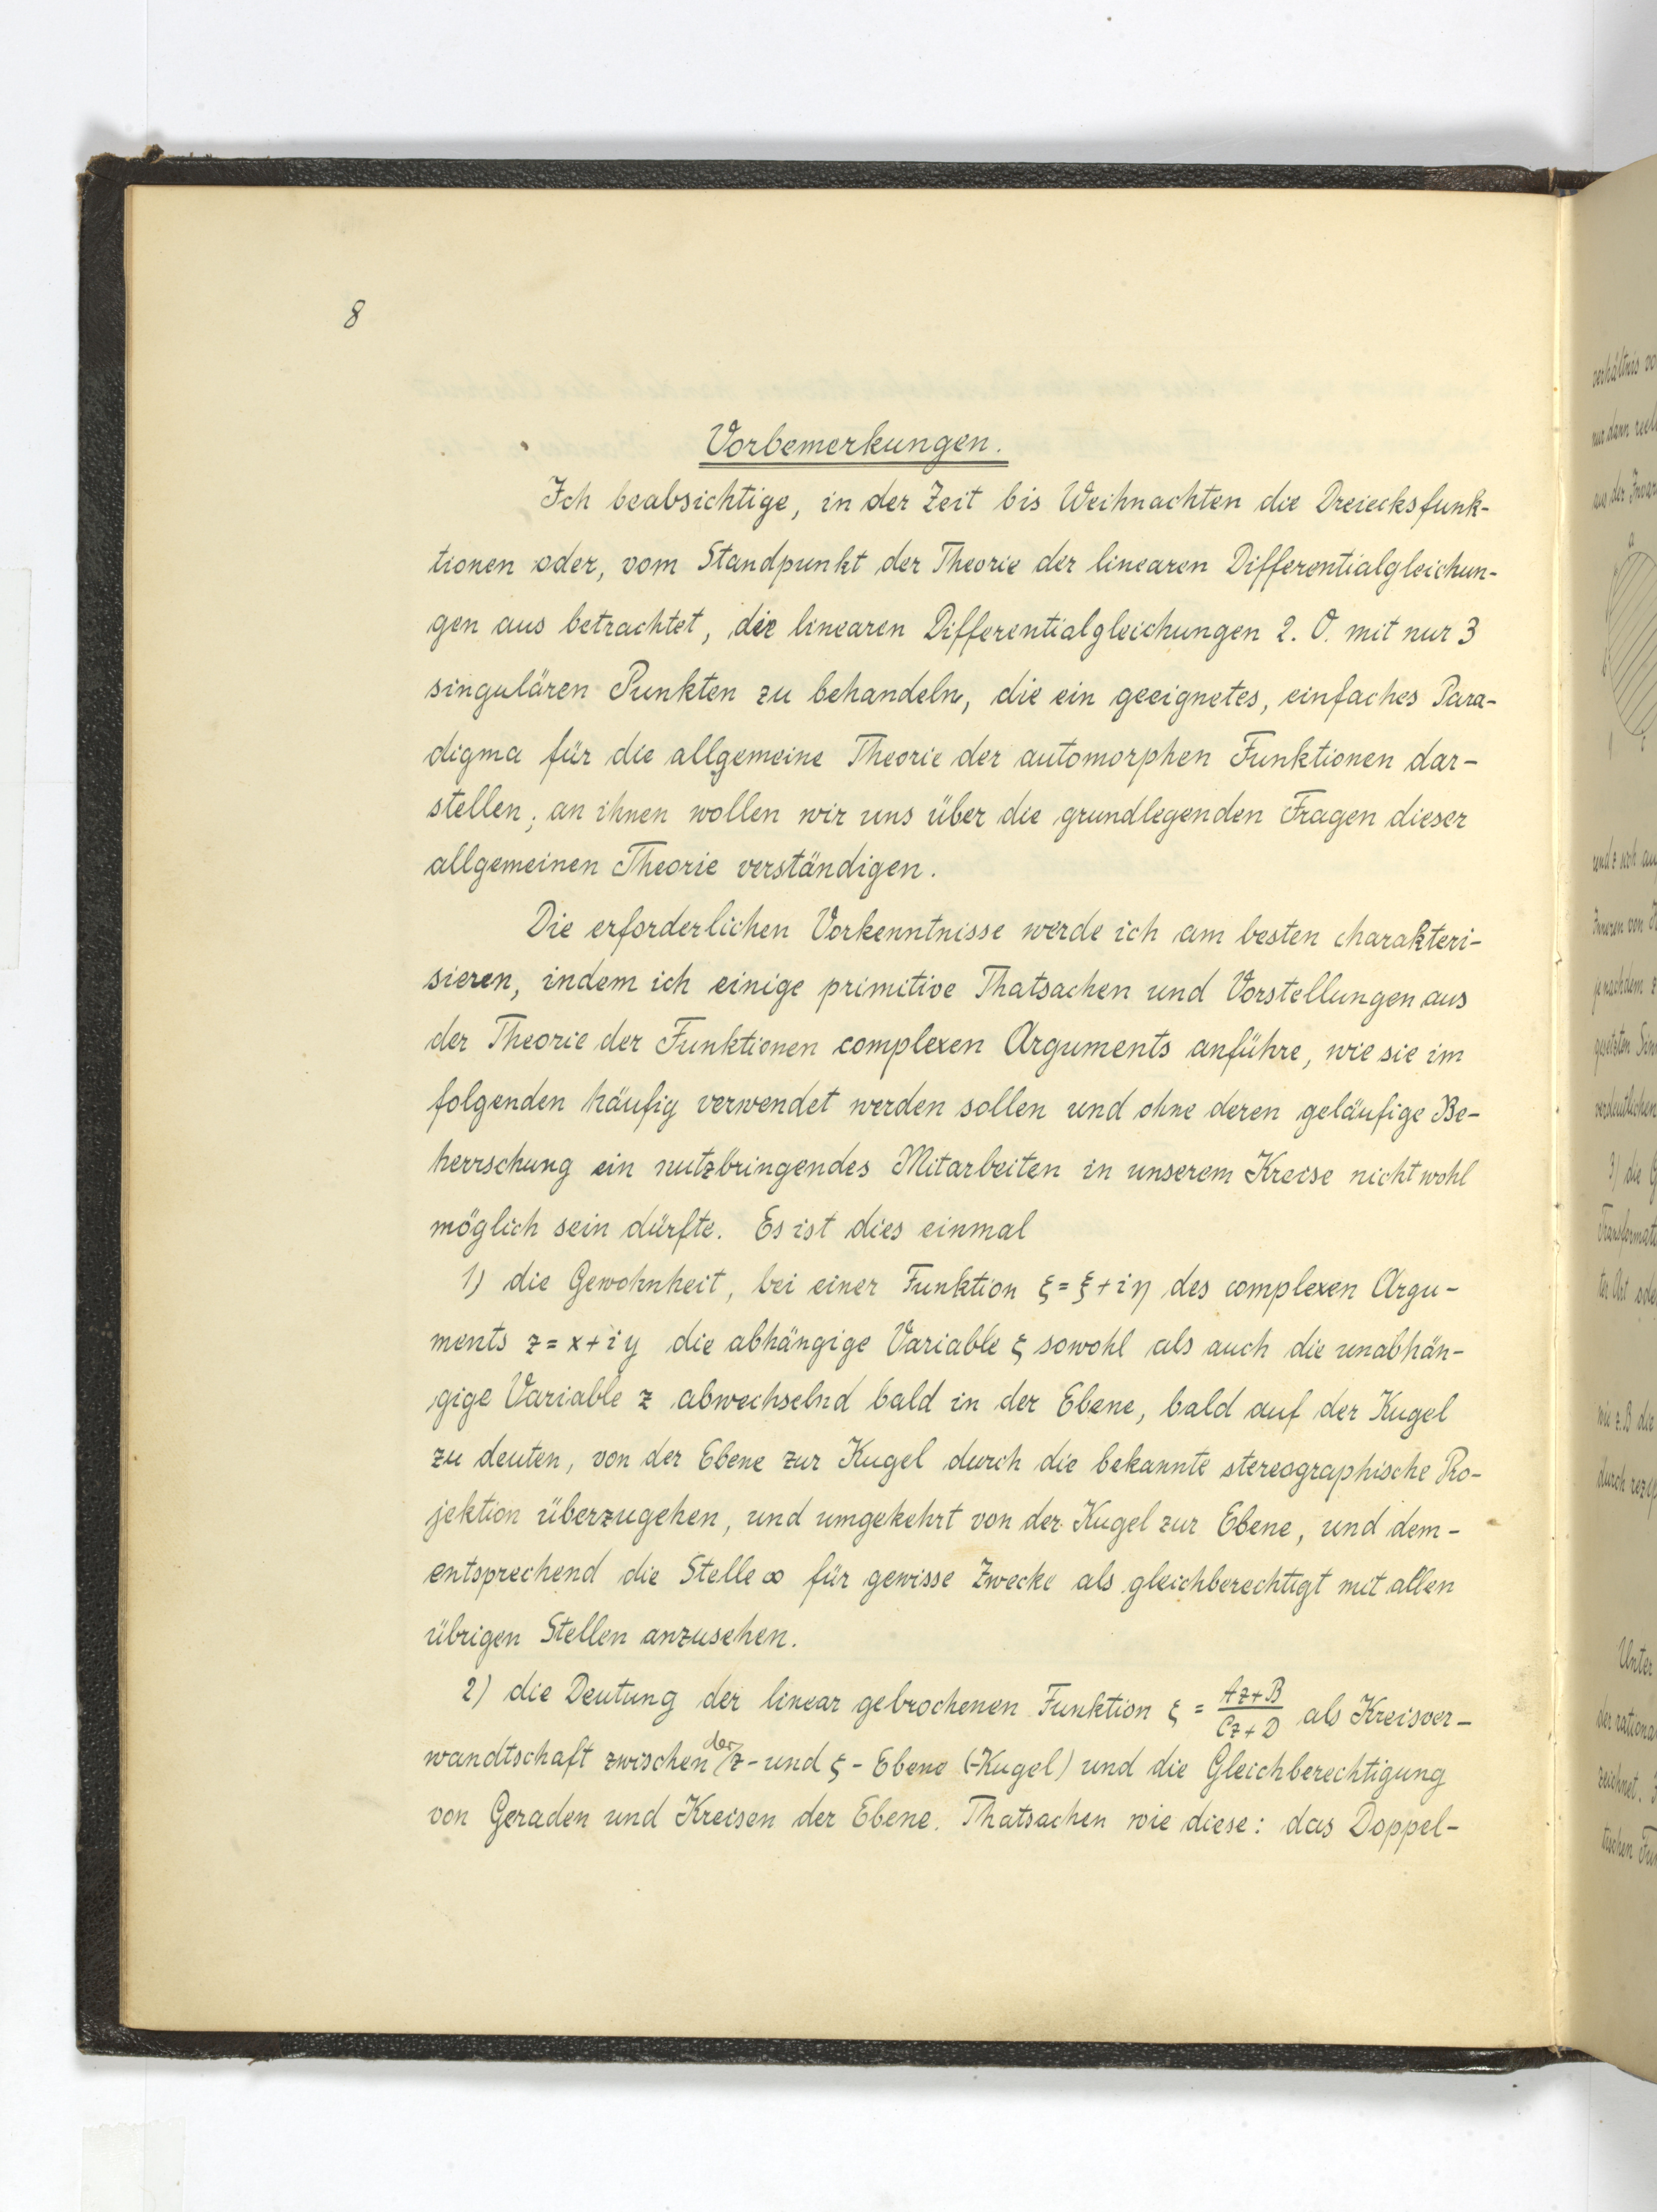 8
Vorbemerkungen.
Ich beabsichtige, in der Zeit bis Weihnachten die Dreiecksfunk-
tionen oder, vom Standpunkt der Theorie der linearen Differentialgleichun-
gen aus betrachtet, die linearen Differentialgleichungen 2. O. mit nur 3
singulären Punkten zu behandeln, die ein geeignetes, einfaches Para-
digma für die allgemeine Theorie der automorphen Funktionen dar-
stellen; an ihnen wollen wir uns über die grundlegenden Fragen dieser
allgemeinen Theorie verständigen.
Die erforderlichen Vorkenntnisse werde ich am besten charakteri-
sieren, indem ich einige primitive Thatsachen und Vorstellungen aus
der Theorie der Funktionen complexen Arguments anführe, wie sie im
folgenden häufig verwendet werden sollen und ohne deren geläufige Be-
herrschung ein nutzbringendes Mitarbeiten in unserem Kreise nicht wohl
möglich sein dürfte. Es ist dies einmal
1) die Gewohnheit, bei einer Funktion ζ = ξ + iη des complexen Argu-
ments z = x + iy die abhängige Variable ζ sowohl als auch die unabhän-
gige Variable z abwechselnd bald in der Ebene, bald auf der Kugel
zu deuten, von der Ebene zur Kugel durch die bekannte stereographische Pro-
jektion überzugehen, und umgekehrt von der Kugel zur Ebene, und dem-
entsprechend die Stelle ∞ für gewisse Zwecke als gleichberechtigt mit allen
übrigen Stellen anzusehen.
2) die Deutung der linear gebrochenen Funktion ζ = (Az+B)/(Cz+D) als Kreisver-
wandtschaft zwischen der z- und ζ-Ebene (-Kugel) und die Gleichberechtigung
von Geraden und Kreisen der Ebene. Thatsachen wie diese: das Doppel-